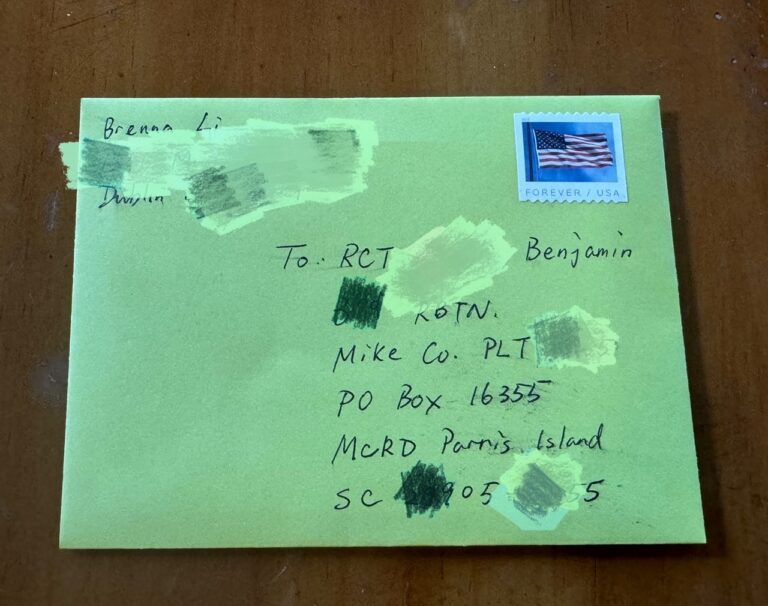 Brenna Li
FOREVER / USA
To: RCT Benjamin
RBTN.
Mike Co. PLT
PO Box 16355
MCRD Parris Island
SC 905 55